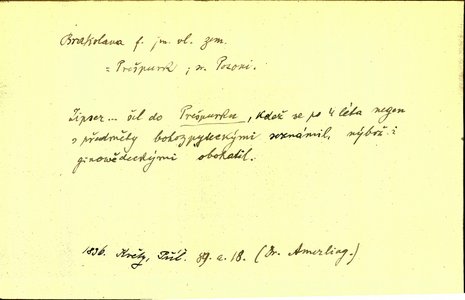 Brakslava f. jm. vl. zem.
= Prešpurk ; n. Posoni.
Zipser... šel do Prešpurku, kdež se po 4 léta negen
s předměty bohozpyteckými seznámil, nýbrž i
ginowědeckými obohatil.
1836. Květy, Příl. 89. a. 18. (Dr. Amerling.)